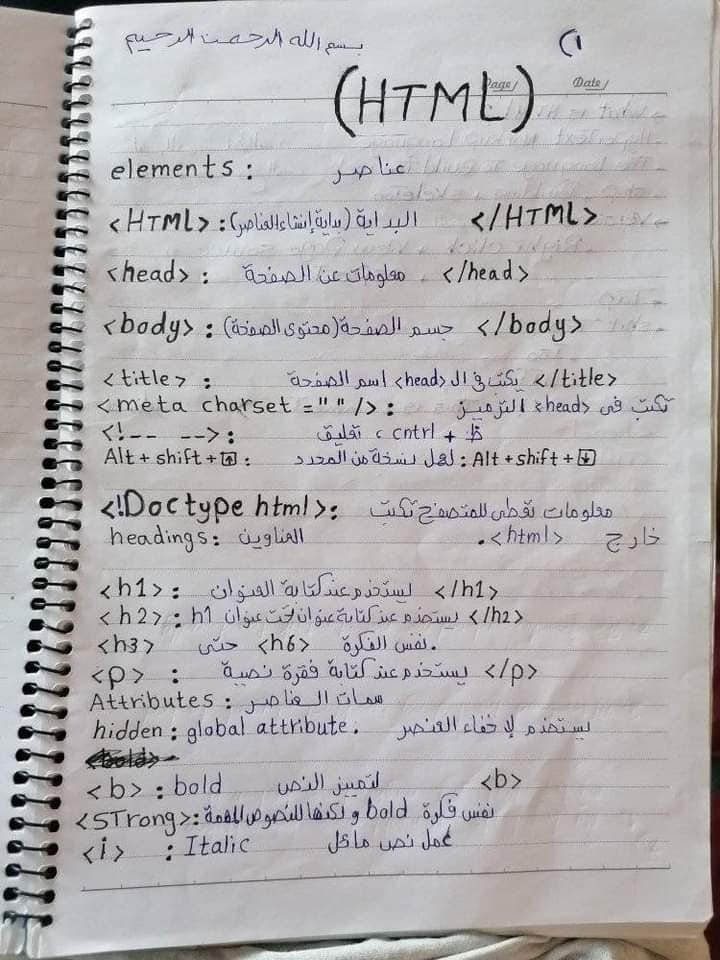 بسم الله الرحمن الرحيم (1
Page/ Date/
(HTML)
elements : عناصر
<HTML> : البداية (بداية إنشاء العناصر) </HTML>
<head> : معلومات عن الصفحة </head>
<body> : جسم الصفحة (محتوى الصفحة) </body>
<title> : يكتب في ال <head> اسم الصفحة </title>
<meta charset = " " /> : تكتب في <head> الترميز
<!-- --> : تعليق ، cntrl + ظ
Alt + shift + ↑ : لعمل نسخة من المحدد : Alt + shift + ↓
<!Doctype html> : معلومات تعطى للمتصفح تكتب
headings : العناوين خارج <html> .
<h1> : يستخدم عند كتابة العنوان </h1>
<h2> : يستخدم عند كتابة عنوان تحت عنوان h1 </h2>
<h3> حتى <h6> نفس الفكرة .
<p> : يستخدم عند كتابة فقرة نصية </p>
Attributes : سمات العناصر
hidden : global attribute . يستخدم لإخفاء العنصر
<b> : bold لتمييز النص <b>
<STrong> : نفس فكرة bold ولكنها للنصوص المهمة
<i> : Italic عمل نص مائل